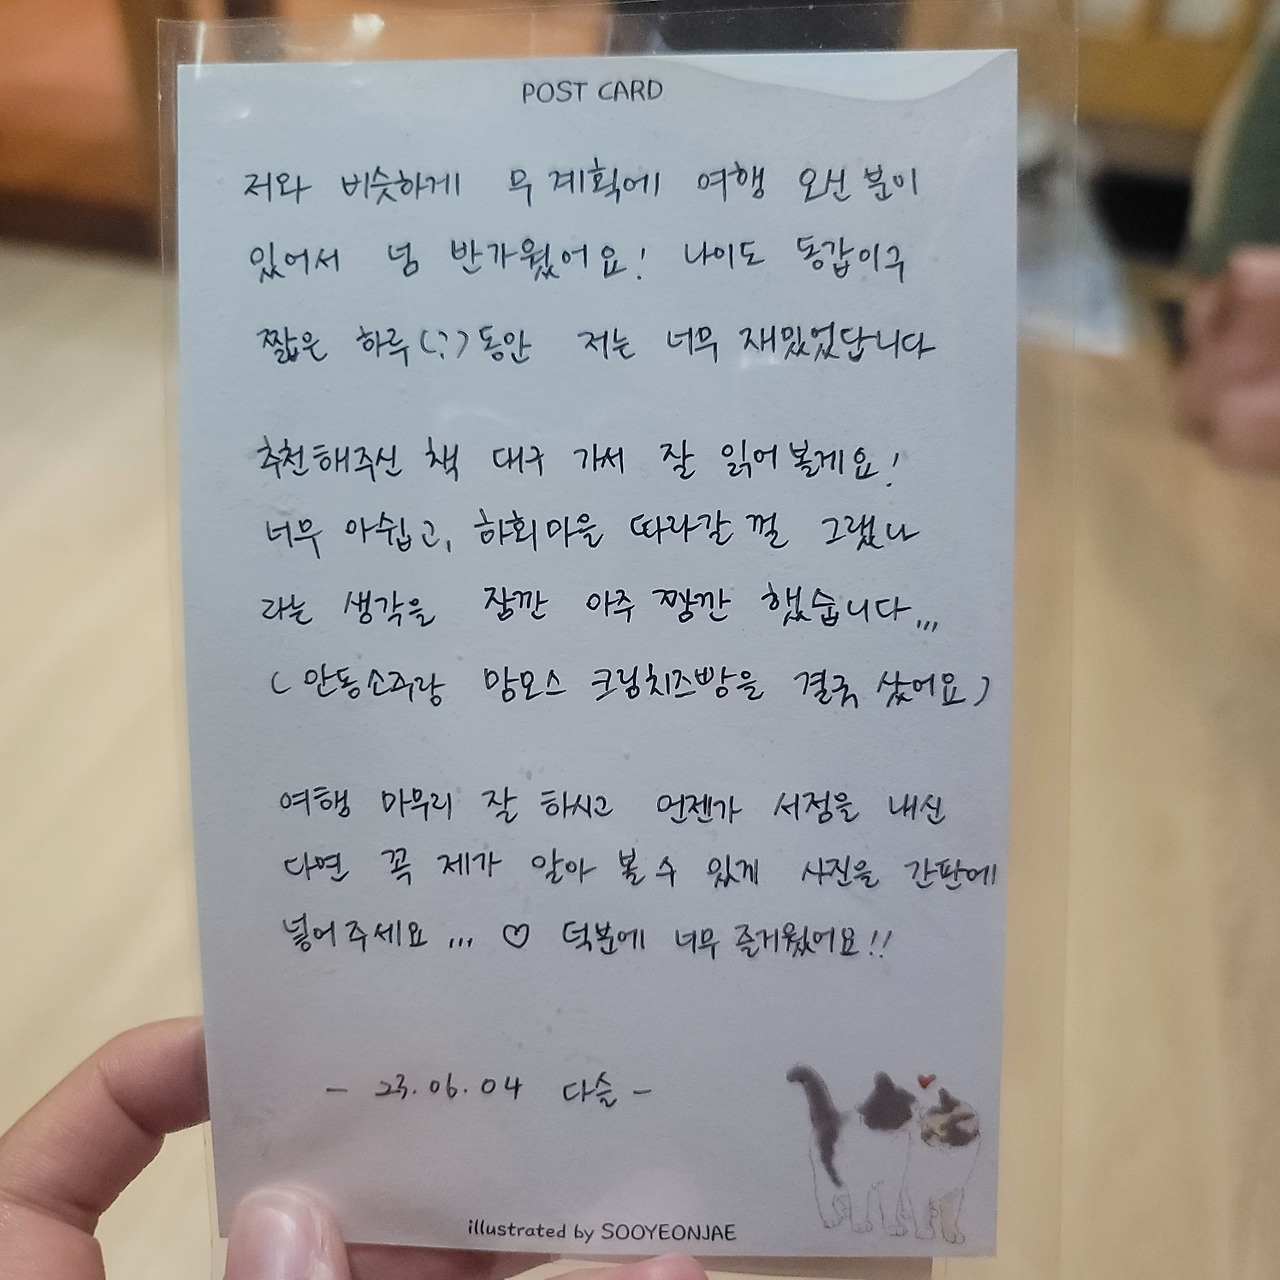 POST CARD
저와 비슷하게 무계획에 여행 오신 분이
있어서 넘 반가웠어요! 나이도 동갑이구
짧은 하루(?)동안 저는 너무 재밌었답니다
추천해주신 책 대구 가서 잘 읽어볼게요!
너무 아쉽고, 하회마을 따라갈 껄 그랬나
라는 생각을 잠깐 아주 짱깐 했습니다...
(안동소주랑 맘모스 크림치즈빵을 결국 샀어요)
여행 마무리 잘 하시고 언젠가 서점을 내신
다면 꼭 제가 알아 볼 수 있게 사진을 간판에
넣어주세요 ... ♡ 덕분에 너무 즐거웠어요!!
- 23.06.04 다슬 -
illustrated by SOOYEONJAE